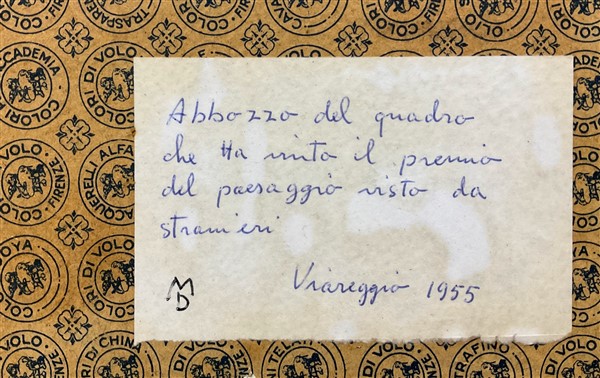 TRASPARE
COLORI
COLORI DI VOLO · FIRENZE
ACCADEMIA ·
COLORI DI VOLO · FIRENZE
ACQUERELLI ALFA
GOYA ·
COLORI DI VOLO
DI VOLO · FIRENZE
COLORI DI CHINA
COLORI DI VOLO
TRAFINO
Abbozzo del quadro
che Ha vinto il premio
del paesaggio visto da
stranieri
Viareggio 1955
MD